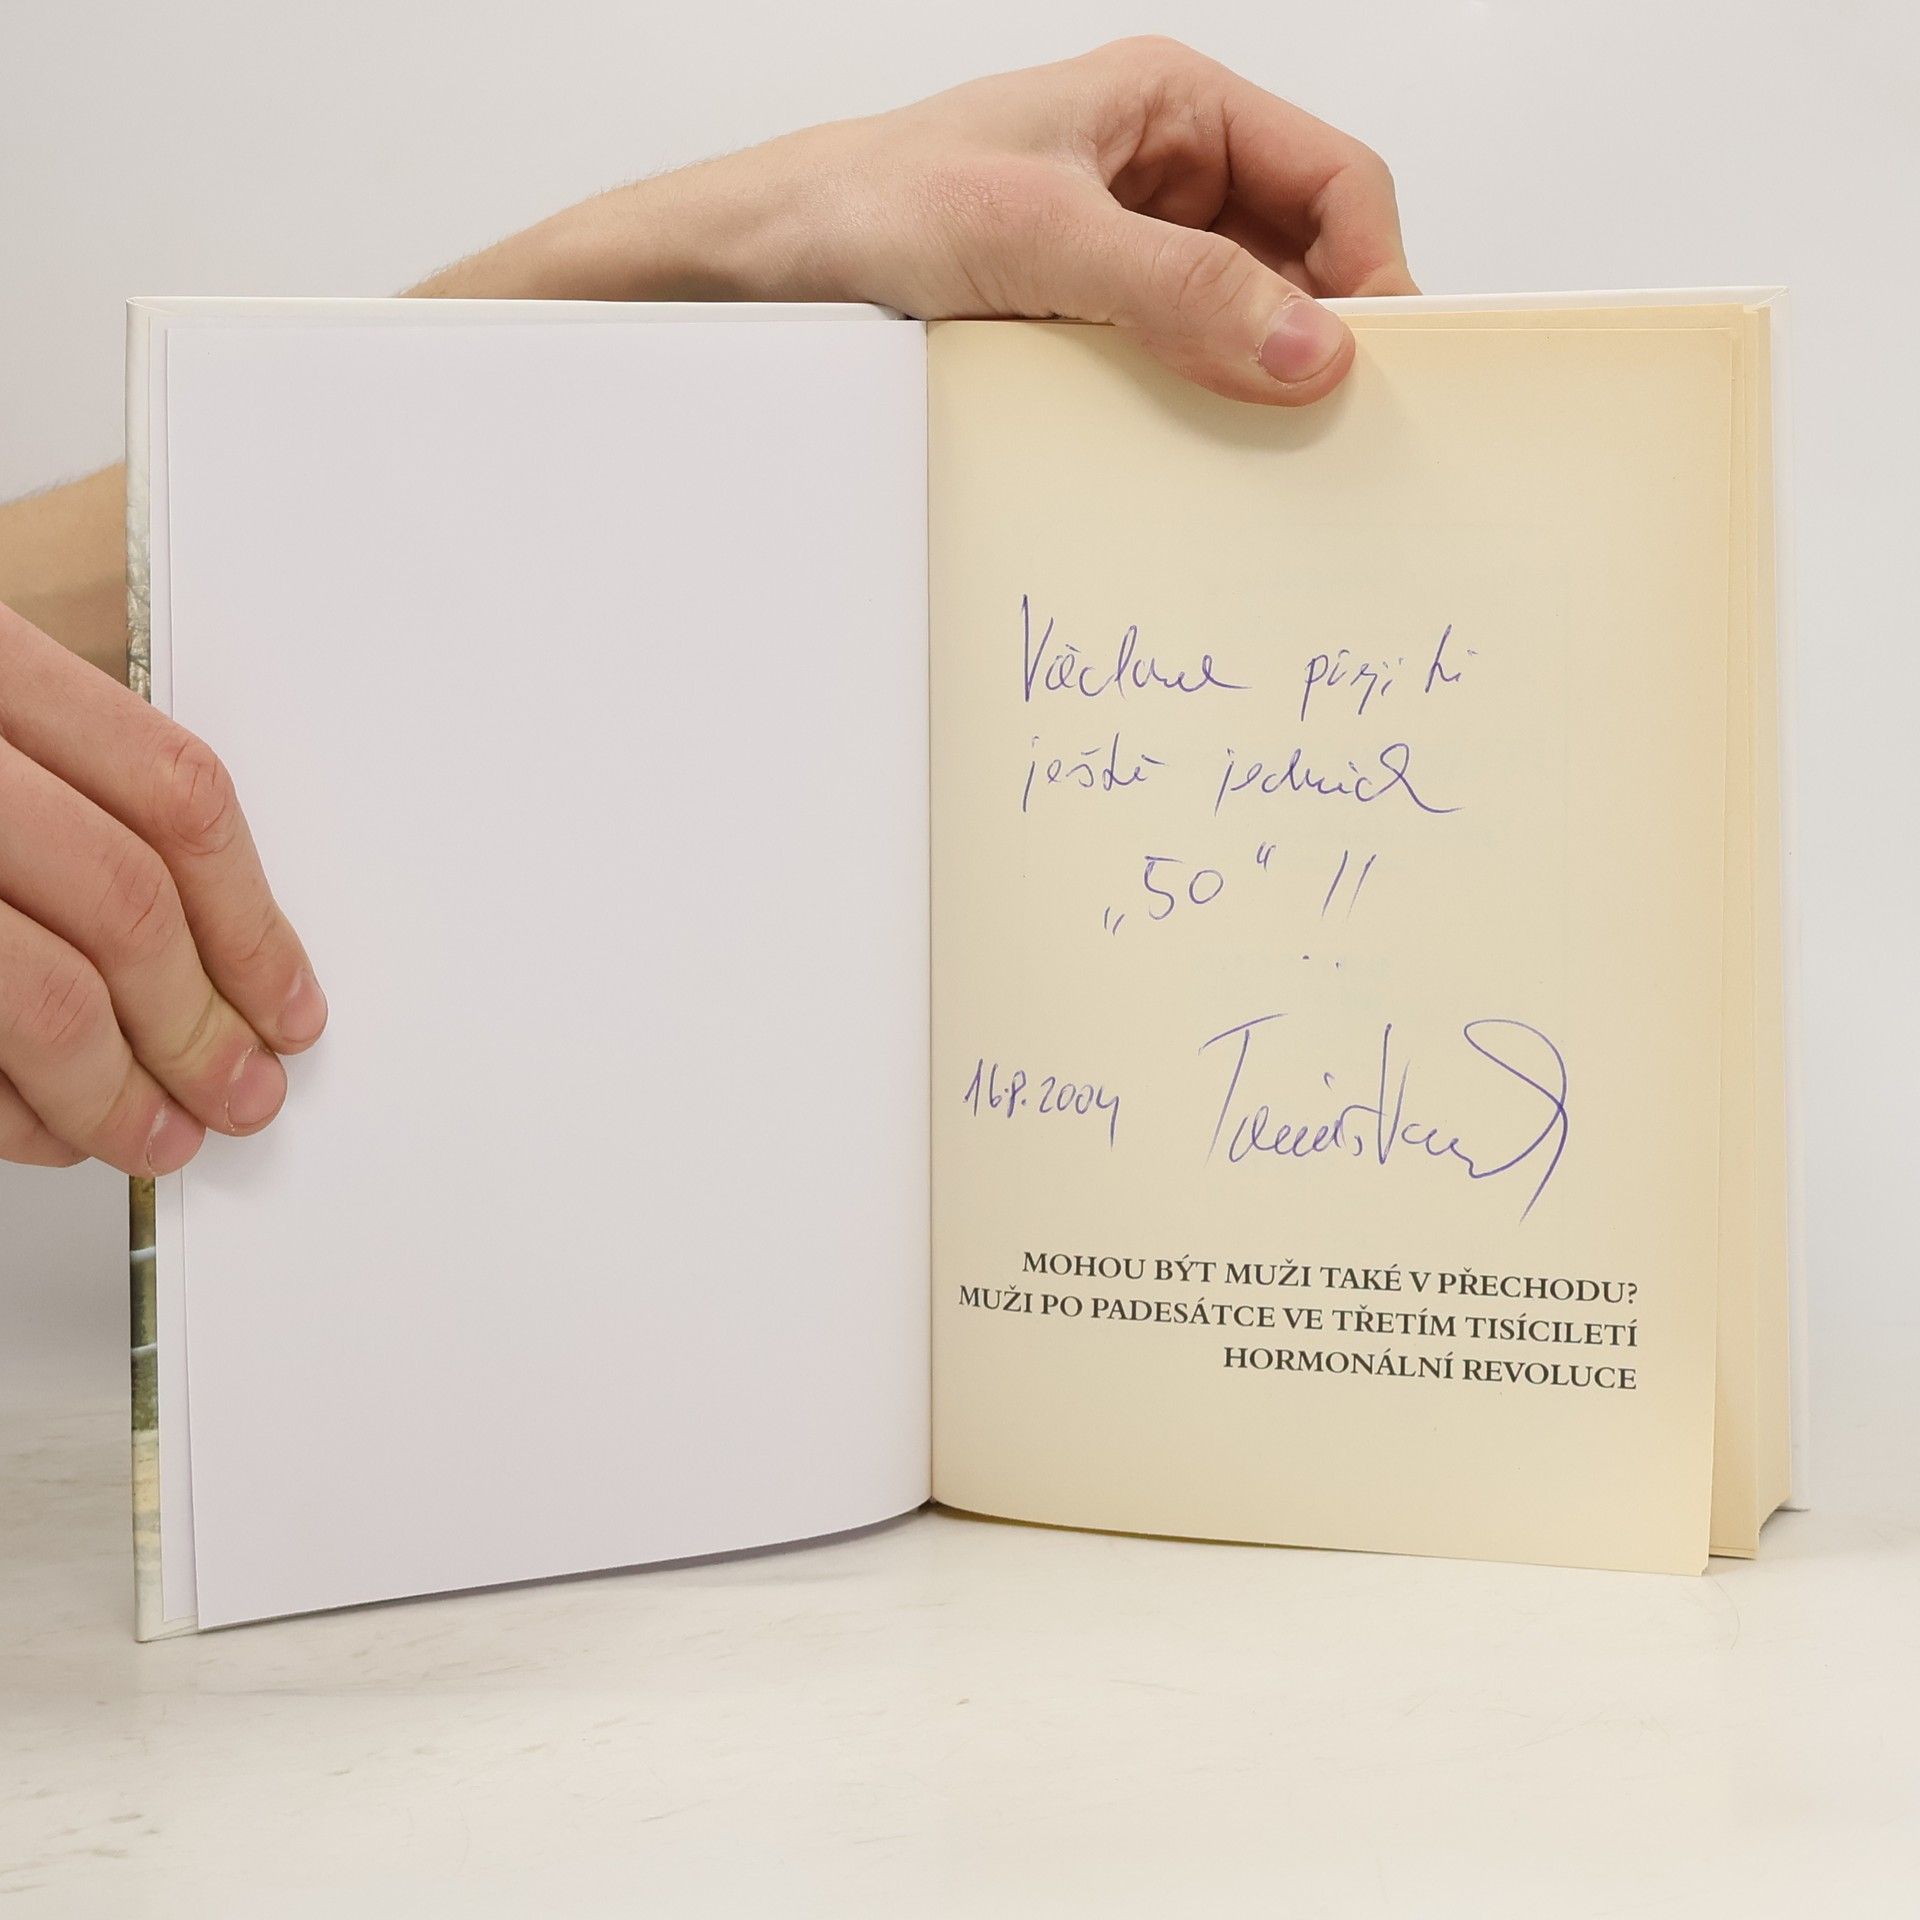 Václave přeji ti
ještě jednich
„50“ !!
16.8.2004
MOHOU BÝT MUŽI TAKÉ V PŘECHODU?
MUŽI PO PADESÁTCE VE TŘETÍM TISÍCILETÍ
HORMONÁLNÍ REVOLUCE